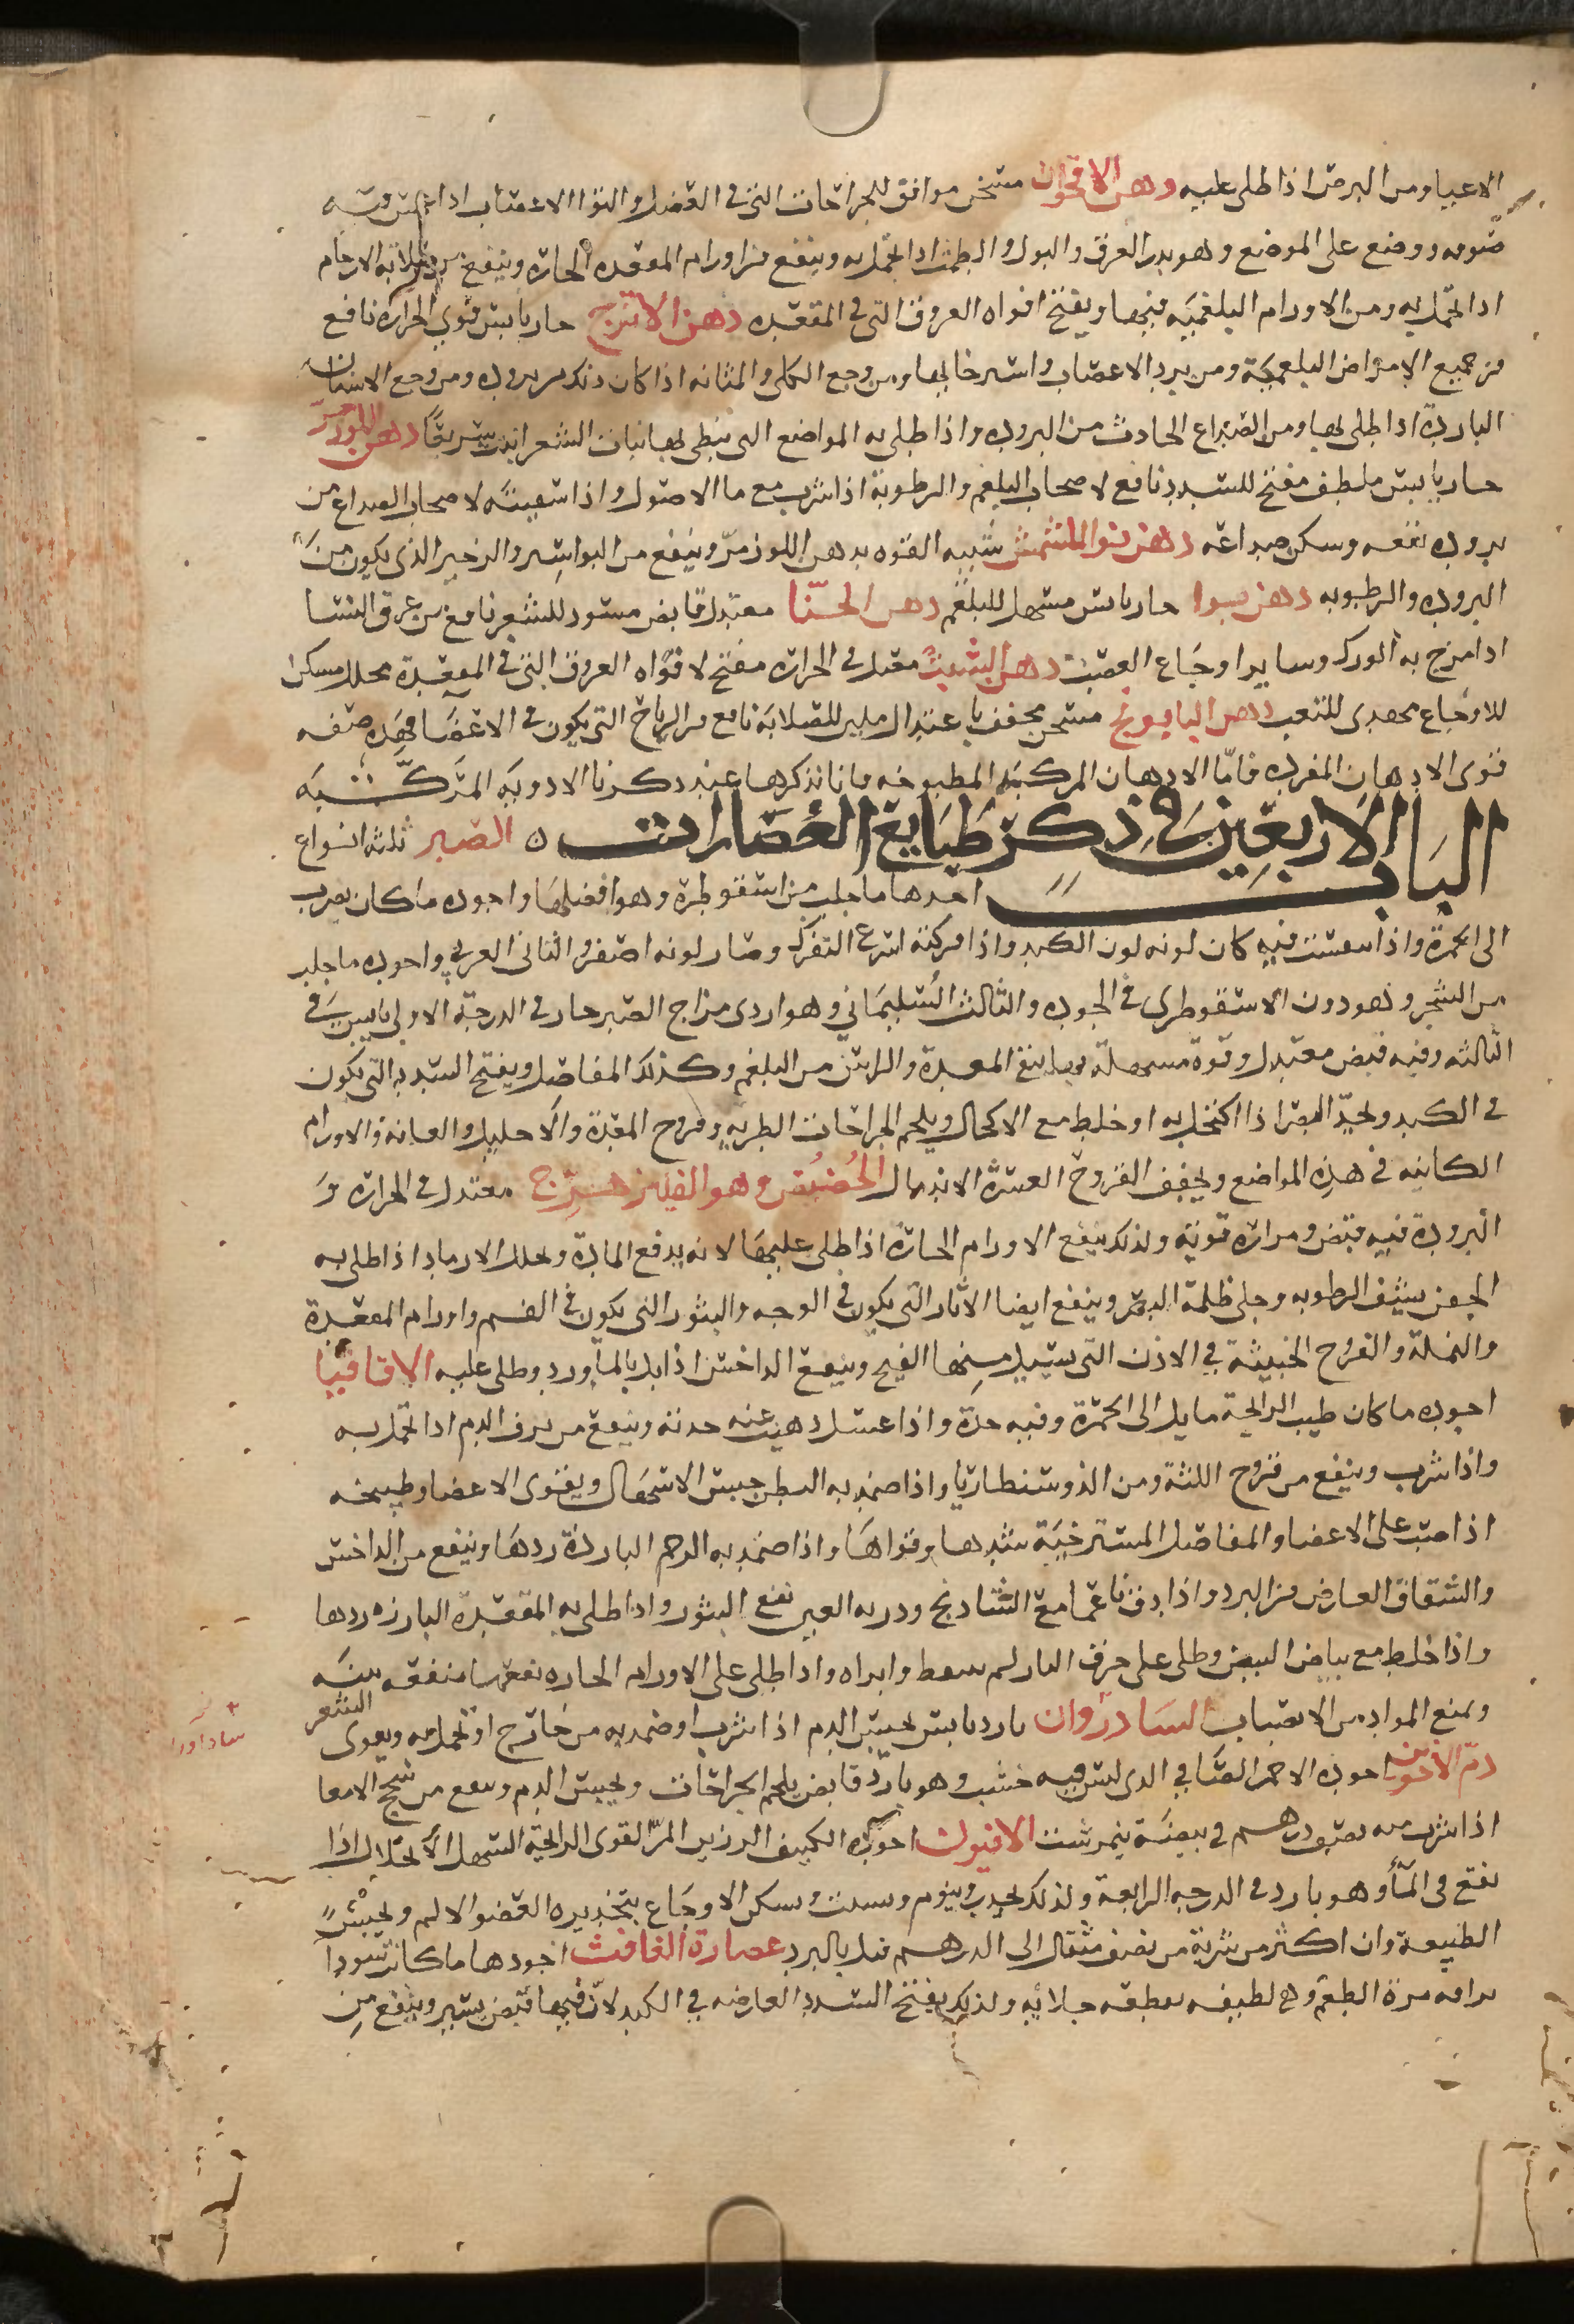 الاعيا ومن البرص اذا طلى عليه دهن الاقحوان مسخن موافق للجراحات التى فى العضل والتوا الاعصاب اذا غمس فيه
صوفه ووضع على الموضع وهو يدر العرق والبول والطمث اذا تحمل به وينفع من اورام المقعده الحاره وينفع من صلابة الارحام
اذا تحمل به ومن الاورام البلغميه فيها ويفتح افواه العروق التى فى المقعده دهن الاترج حار يابس قوي الحراره نافع
من جميع الامراض البلغميّة ومن برد الاعصاب واسترخايها ومن وجع الكلى والمثانه اذا كان ذلك من بروده ومن وجع الاسنان
الباردة اذا طلى بها ومن الصداع الحادث من البروده واذا طلى به المواضع التى يبطى بها نبات الشعر انبت سريعًا دهن اللوز مرّ
حار يابس ملطف مفتح للسدد نافع لاصحاب البلغم والرطوبة اذا شرب مع ما الاصول واذا سقيته لاصحاب الصداع من
بروده نفعه وسكن صداعه دهن نوا المشمش شبيه القوه بدهن اللوز مرّ وينفع من البواسير والزحير الذى يكون من
البروده والرطوبه دهن حار يابس مسهل للبلغم دهن الحنّا معتدل قابض مسود للشعر نافع من عرق النسا
اذا مرخ به الورك وساير اوجاع العصب دهن الشبت معتدل فى الحراره مفتح لافواه العروق التى فى المقعدة محلل مسكن
للاوجاع مهدى للتعب دهن البابونج مسخن مجفف باعتدال ملين للصلابة نافع من الرياح التى يكون فى الاعضا فهذه صفه
قوى الادهان المفرده فامّا الادهان المركبة المطبوخه فانا نذكرها عند ذكرنا الادويه المركّبه
الباب الاربعين فى ذكر طبايع العصارات ٥ الصبر ثلثه انواع
احدها ما جلب من اسقوطرة وهو افضلها واجوده ما كان يضرب
الى الحمرة واذا تنفست فيه كان لونه لون الكبد واذا فركته اسرع التفرك وصار لونه اصفر والثانى العربي واجوده ما جلب
من الشجر وهو دون الاسقوطرى فى الجوده والثالث السليمانى وهو اردى مزاج الصبر حار فى الدرجة الاولى يابس فى
الثالثه وفيه قبض معتدل وقوة مسهلة بها ينقى المعدة والراس من البلغم وكذلك المفاصل ويفتح السدد التى يكون
فى الكبد ويحدّ البصر اذا اكتحل به او خلط مع الاكحال ويلحم الجراحات الطريه وقروح المقعدة والاحليل والعانه والاورام
الكاينه فى هذه المواضع ويجفف القروح العسرة الاندمال الحُضُض وهو الفيلزهرج معتدل فى الحراره و
البرودة فيه قبض ومراره قوية ولذلك ينفع الاورام الحارة اذا طلى عليها لانه يدفع المادة ويحلل الارماد اذا طلى به
الجفن ينشف الرطوبه وجلى ظلمة البصر وينفع ايضا الاثار التى يكون فى الوجه والبثور التى يكون فى الفم واورام المقعدة
والنملة والقروح الخبيثة فى الاذن التى يسيل منها القيح وينفع الداخس اذا بل بالماورد وطلى عليه الاقاقيا
اجوده ما كان طيب الرايحة مايل الى الحمرة وفيه حدة واذا غسل ذهبت عنه حدته وينفع من نزف الدم اذا تحمل به
واذا شرب وينفع من قروح اللثة ومن الذوسنطاريا واذا ضمد به البطن حبس الاسهال ويقوى الاعضا وطبيخه
اذا صب على الاعضا والمفاصل المسترخية شدها وقواها واذا ضمد به الرحم البارزة ردها وينفع من الداخس
والشقاق العارض من البرد واذا دق ناعما مع الشادنج وذر به العين نفع البثور واذا طلى به المقعدة البارزه ردها
واذا خلط مع بياض البيض وطلى على حرق النار لم يتنفط وابراه واذا طلى على الاورام الحاره نفعها منفعه بينه
ويمنع المواد من الانصباب السادروان بارد يابس يحبس الدم اذا شرب او ضمد به من خارج او تحمل به ويقوى الشعر
دمّ الاخوين اجوده الاحمر الصافى الذى ليس فيه خشب وهو بارد قابض يلحم الجراحات ويحبس الدم وينفع من سحج الامعا
اذا شرب منه نصف درهم فى بيضة نيمرشت الافيون اجوده الكثيف الرزين المرّ القوى الرايحة السهل الانحلال اذا
نقع فى المآ وهو بارد فى الدرجه الرابعة ولذلك يخدر وينوم ويسبت ويسكن الاوجاع بتخديره العضو الالم ويحبس
الطبيعة وان اكثر من شربة من نصف مثقال الى الدرهم قتل بالبرد عصارة الغافث اجودها ما كان سودا
براقه مرة الطعم وهى لطيفه مقطعه جلائيه ولذلك يفتح السدد العارضه فى الكبد لان فيها قبض يسير وينفع من
سادأوران